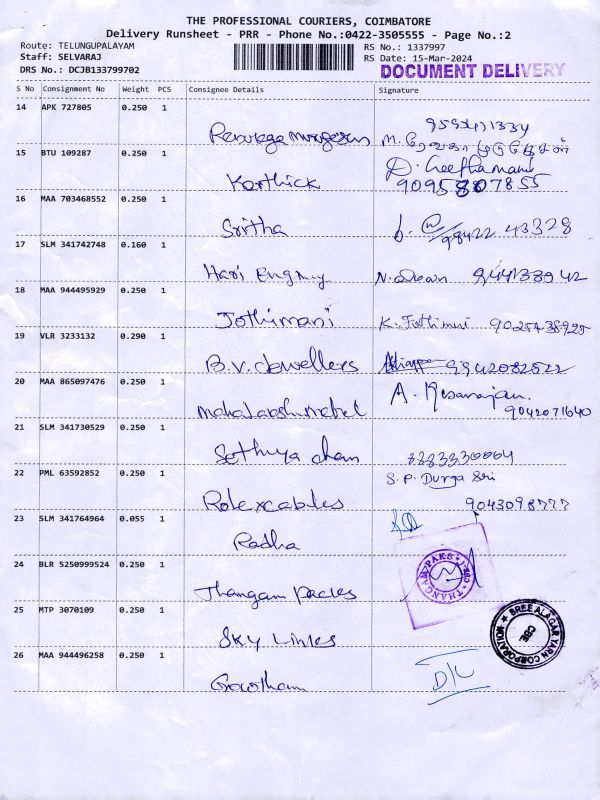 THE PROFESSIONAL COURIERS, COIMBATORE
Delivery Runsheet - PRR - Phone No.:0422-3505555 - Page No.:2
Route: TELUNGUPALAYAM
RS No.: 1337997
Staff: SELVARAJ
RS Date: 15-Mar-2024
DRS No.: DCJB133799702
DOCUMENT DELIVERY
S No Consignment No Weight PCS Consignee Details Signature
14 APK 727805 0.250 1
M. ரேவகா முருகேசன்
15 BTU 109287 0.250 1
Karthick D. Geethamani
9095807855
16 MAA 703468552 0.250 1
Sritha 98422 43328
17 SLM 341742748 0.160 1
Hari Engg
18 MAA 944495929 0.250 1
Jothimani K. Jothimani 9025438925
19 VLR 3233132 0.290 1
B.V. Jewellers 9942082822
20 MAA 865097476 0.250 1
Mahalakshmi A. Kesavarajan.
9042071640
21 SLM 341730529 0.250 1
Sathya 8883330004
22 PML 63592852 0.250 1
S.P. Durga Sri
Rolexcables 9043098777
23 SLM 341764964 0.055 1
Radha
24 BLR 5250999524 0.250 1
Thangam Packs THANGAM PAKS
25 MTP 3070109 0.250 1
Sky Links SREE ALAGAR YARN CORPORATION
26 MAA 944496258 0.250 1
Gowtham D/L